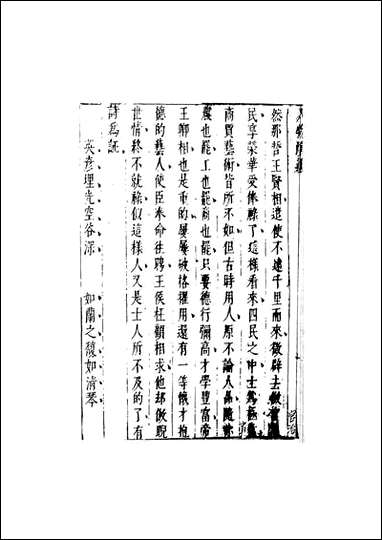 然那哲王賢相遣使不遠千里而來徵辟去做官
民享榮華受俸祿了這樣看來四民之中士爲
商賈藝術皆所不如但古時用人原不論人品隨
農也罷工也罷商也罷只要德行彌高才學豐富帝
王卿相也是重的屢屢破格擢用還有一等懷才抱
德的藝人使臣奉命往聘王侯枉顧相求他却傲睨
世情終不就祿似這樣人又是士人所不及的了有
詩爲証
英彥埋光空谷深　如蘭之馥如清琴